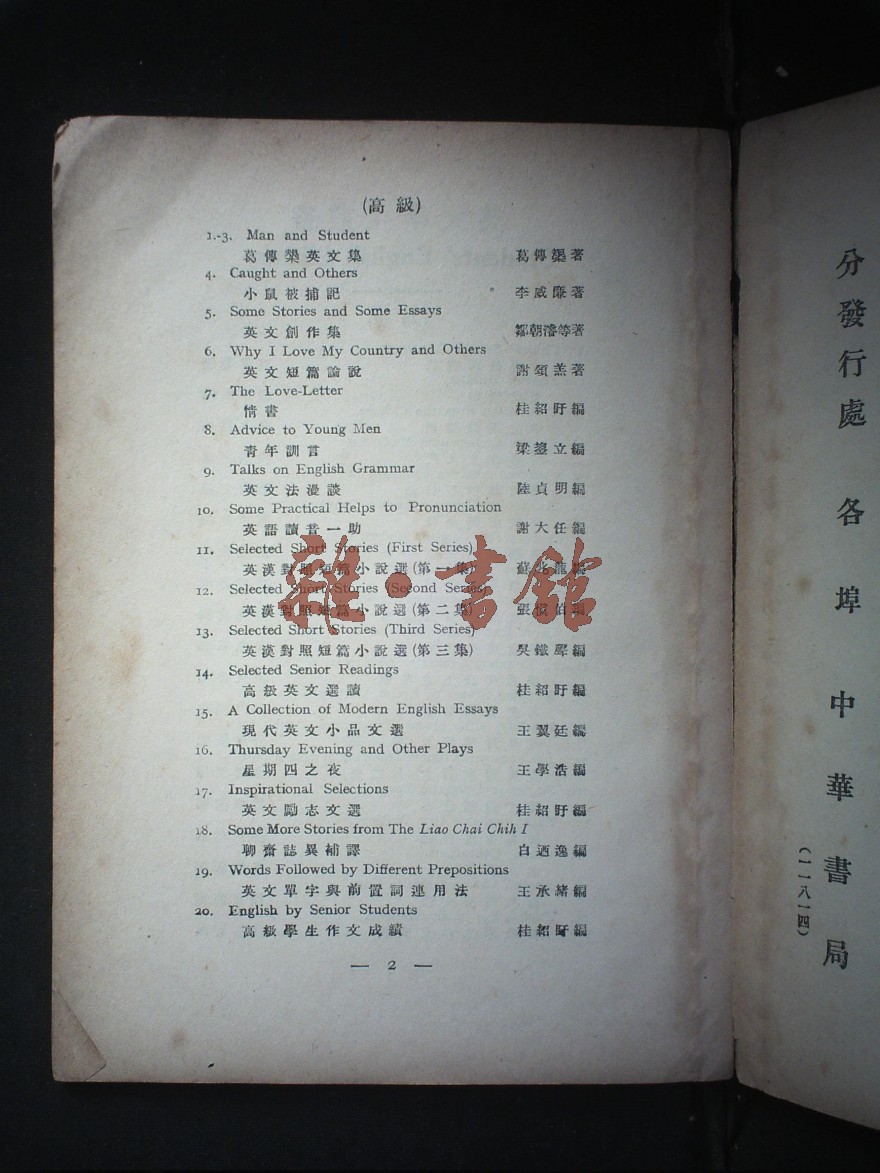 (高級)
1.-3. Man and Student
葛傳槼英文集 葛傳槼著
4. Caught and Others
小鼠被捕記 李威廉著
5. Some Stories and Some Essays
英文創作集 鄒朝濬等著
6. Why I Love My Country and Others
英文短篇論說 謝頌羔著
7. The Love-Letter
情書 桂紹盱編
8. Advice to Young Men
青年訓言 梁鋆立編
9. Talks on English Grammar
英文法漫談 陸貞明編
10. Some Practical Helps to Pronunciation
英語讀音一助 謝大任編
11. Selected Short Stories (First Series)
英漢對照短篇小說選(第一集) 蘇兆龍編
12. Selected Short Stories (Second Series)
英漢對照短篇小說選(第二集) 張慎伯編
13. Selected Short Stories (Third Series)
英漢對照短篇小說選(第三集) 吳鐵聲編
14. Selected Senior Readings
高級英文選讀 桂紹盱編
15. A Collection of Modern English Essays
現代英文小品文選 王翼廷編
16. Thursday Evening and Other Plays
星期四之夜 王學浩編
17. Inspirational Selections
英文勵志文選 桂紹盱編
18. Some More Stories from The Liao Chai Chih I
聊齋誌異補譯 白迺逸編
19. Words Followed by Different Prepositions
英文單字與前置詞連用法 王承緒編
20. English by Senior Students
高級學生作文成績 桂紹盱編
— 2 —
雜·書館
分發行處 各埠中華書局
(一一八一四)